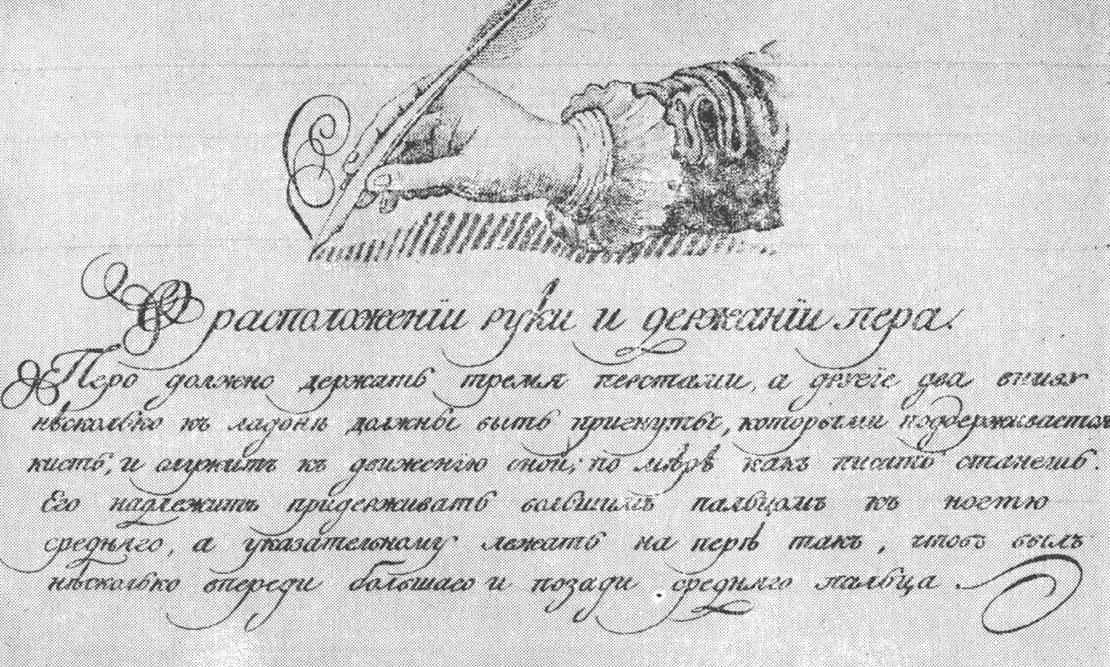 О расположенїи руки и держанїи пера.
Перо должно держать тремя перстами, а другїе два внизу
нѣсколько къ ладонѣ должны быть пригнуты, которыми поддерживается
кисть, и служитъ къ движенїю оной, по мѣрѣ какъ писать станешь.
Его надлежитъ придерживать большимъ пальцомъ къ ногтю
среднѧго, а указательному лежать на перѣ такъ, чтобъ былъ
нѣсколько впереди большаго и позади среднѧго пальца